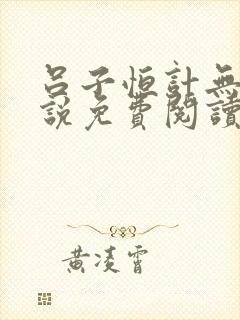 呂子恒計無
說免費閱讀
黃凌霄